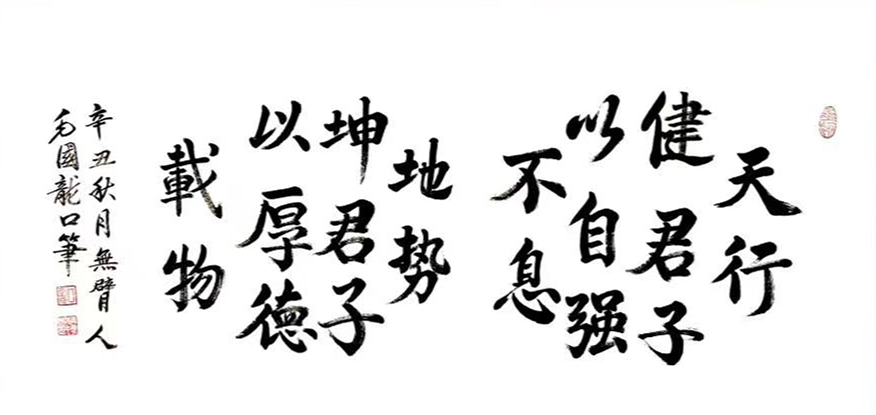 天行
健君子
以自强
不息
地势
坤君子
以厚德
載物
辛丑秋月無臂人
毛國龍口筆